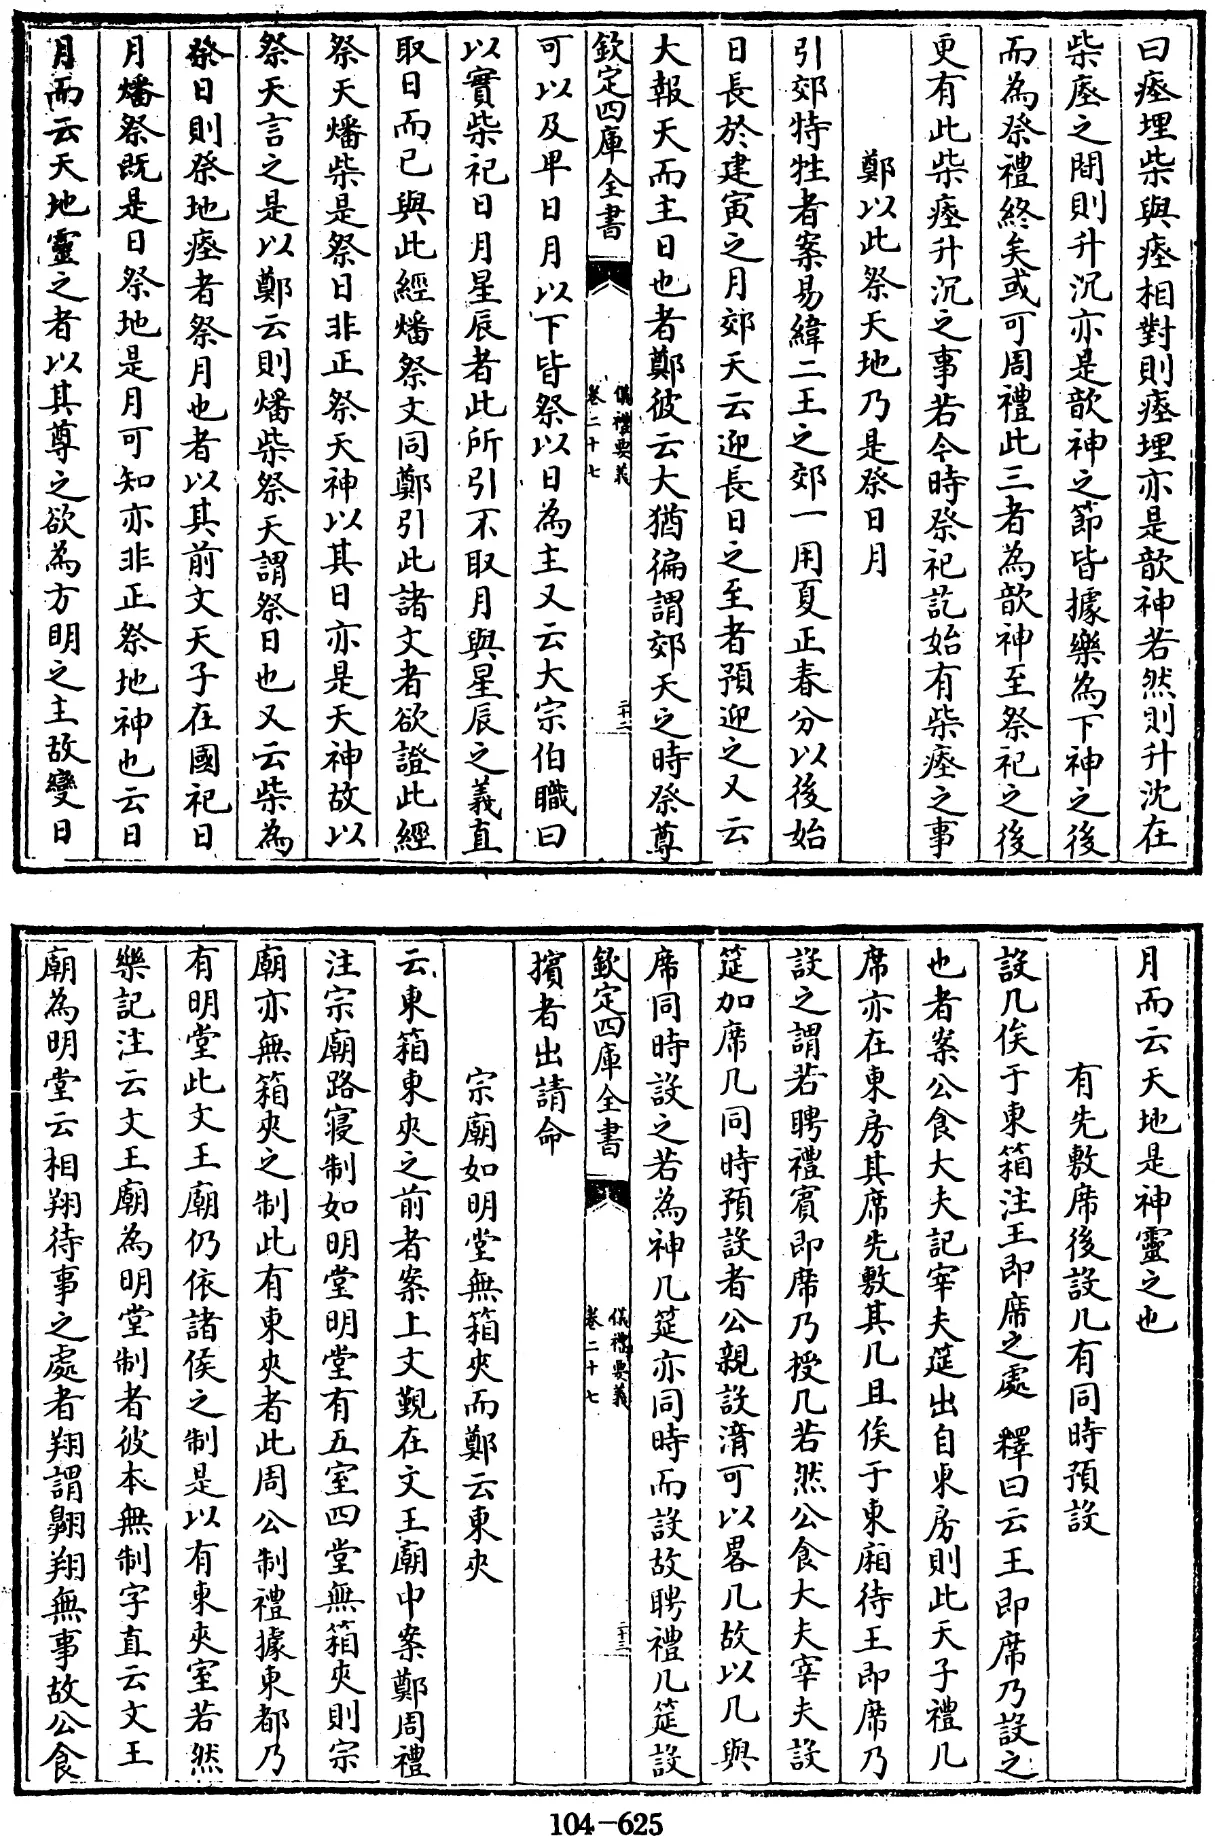 曰瘞埋柴與瘞相對則瘞埋亦是歆神若然則升沈在
柴瘞之間則升沉亦是歆神之節皆據樂為下神之後
而為祭禮終矣或可周禮此三者為歆神至祭祀之後
更有此柴瘞升沉之事若今時祭祀訖始有柴瘞之事
鄭以此祭天地乃是祭日月
引郊特牲者案易緯三王之郊一用夏正春分以後始
日長於建寅之月郊天云迎長日之至者預迎之又云
大報天而主日也者鄭彼云大猶徧謂郊天之時祭尊
欽定四庫全書
儀禮要義
卷二十七
二十二
可以及卑日月以下皆祭以日為主又云大宗伯職曰
以實柴祀日月星辰者此所引不取月與星辰之義直
取日而已與此經燔祭文同鄭引此諸文者欲證此經
祭天燔柴是祭日非正祭天神以其日亦是天神故以
祭天言之是以鄭云則燔柴祭天謂祭日也又云柴為
祭日則祭地瘞者祭月也者以其前文天子在國祀日
月燔祭既是日祭地是月可知亦非正祭地神也云日
月而云天地靈之者以其尊之欲為方明之主故變日
月而云天地是神靈之也
有先敷席後設几有同時預設
設几俟于東箱注王即席之處 釋曰云王即席乃設之
也者案公食大夫記宰夫筵出自東房則此天子禮几
席亦在東房其席先敷其几且俟于東廂待王即席乃
設之謂若聘禮賓即席乃授几若然公食大夫宰夫設
筵加席几同時預設者公親設湆可以畧几故以几與
席同時設之若為神几筵亦同時而設故聘禮几筵設
欽定四庫全書
儀禮要義
卷二十七
二十三
擯者出請命
宗廟如明堂無箱夾而鄭云東夾
云東箱東夾之前者案上文覲在文王廟中案鄭周禮
注宗廟路寢制如明堂明堂有五室四堂無箱夾則宗
廟亦無箱夾之制此有東夾者此周公制禮據東都乃
有明堂此文王廟仍依諸侯之制是以有東夾室若然
樂記注云文王廟為明堂制者彼本無制字直云文王
廟為明堂云相翔待事之處者翔謂翱翔無事故公食
104-625